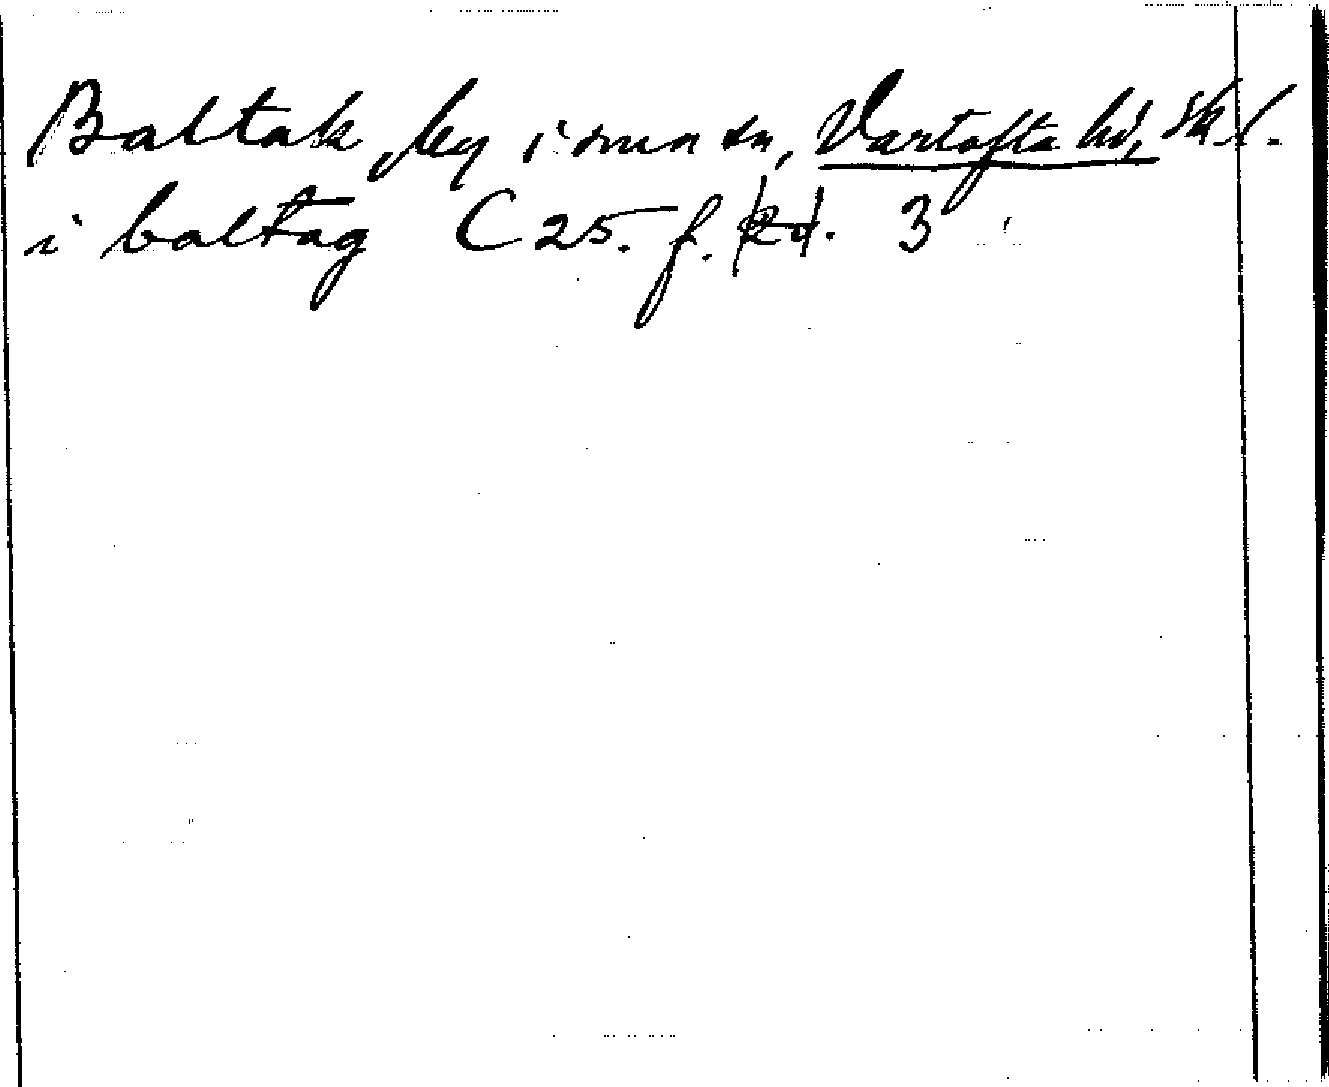 Baltak, by i smn sn, Vartofta hd, Sk.l.
i baltag C 25. f. 3